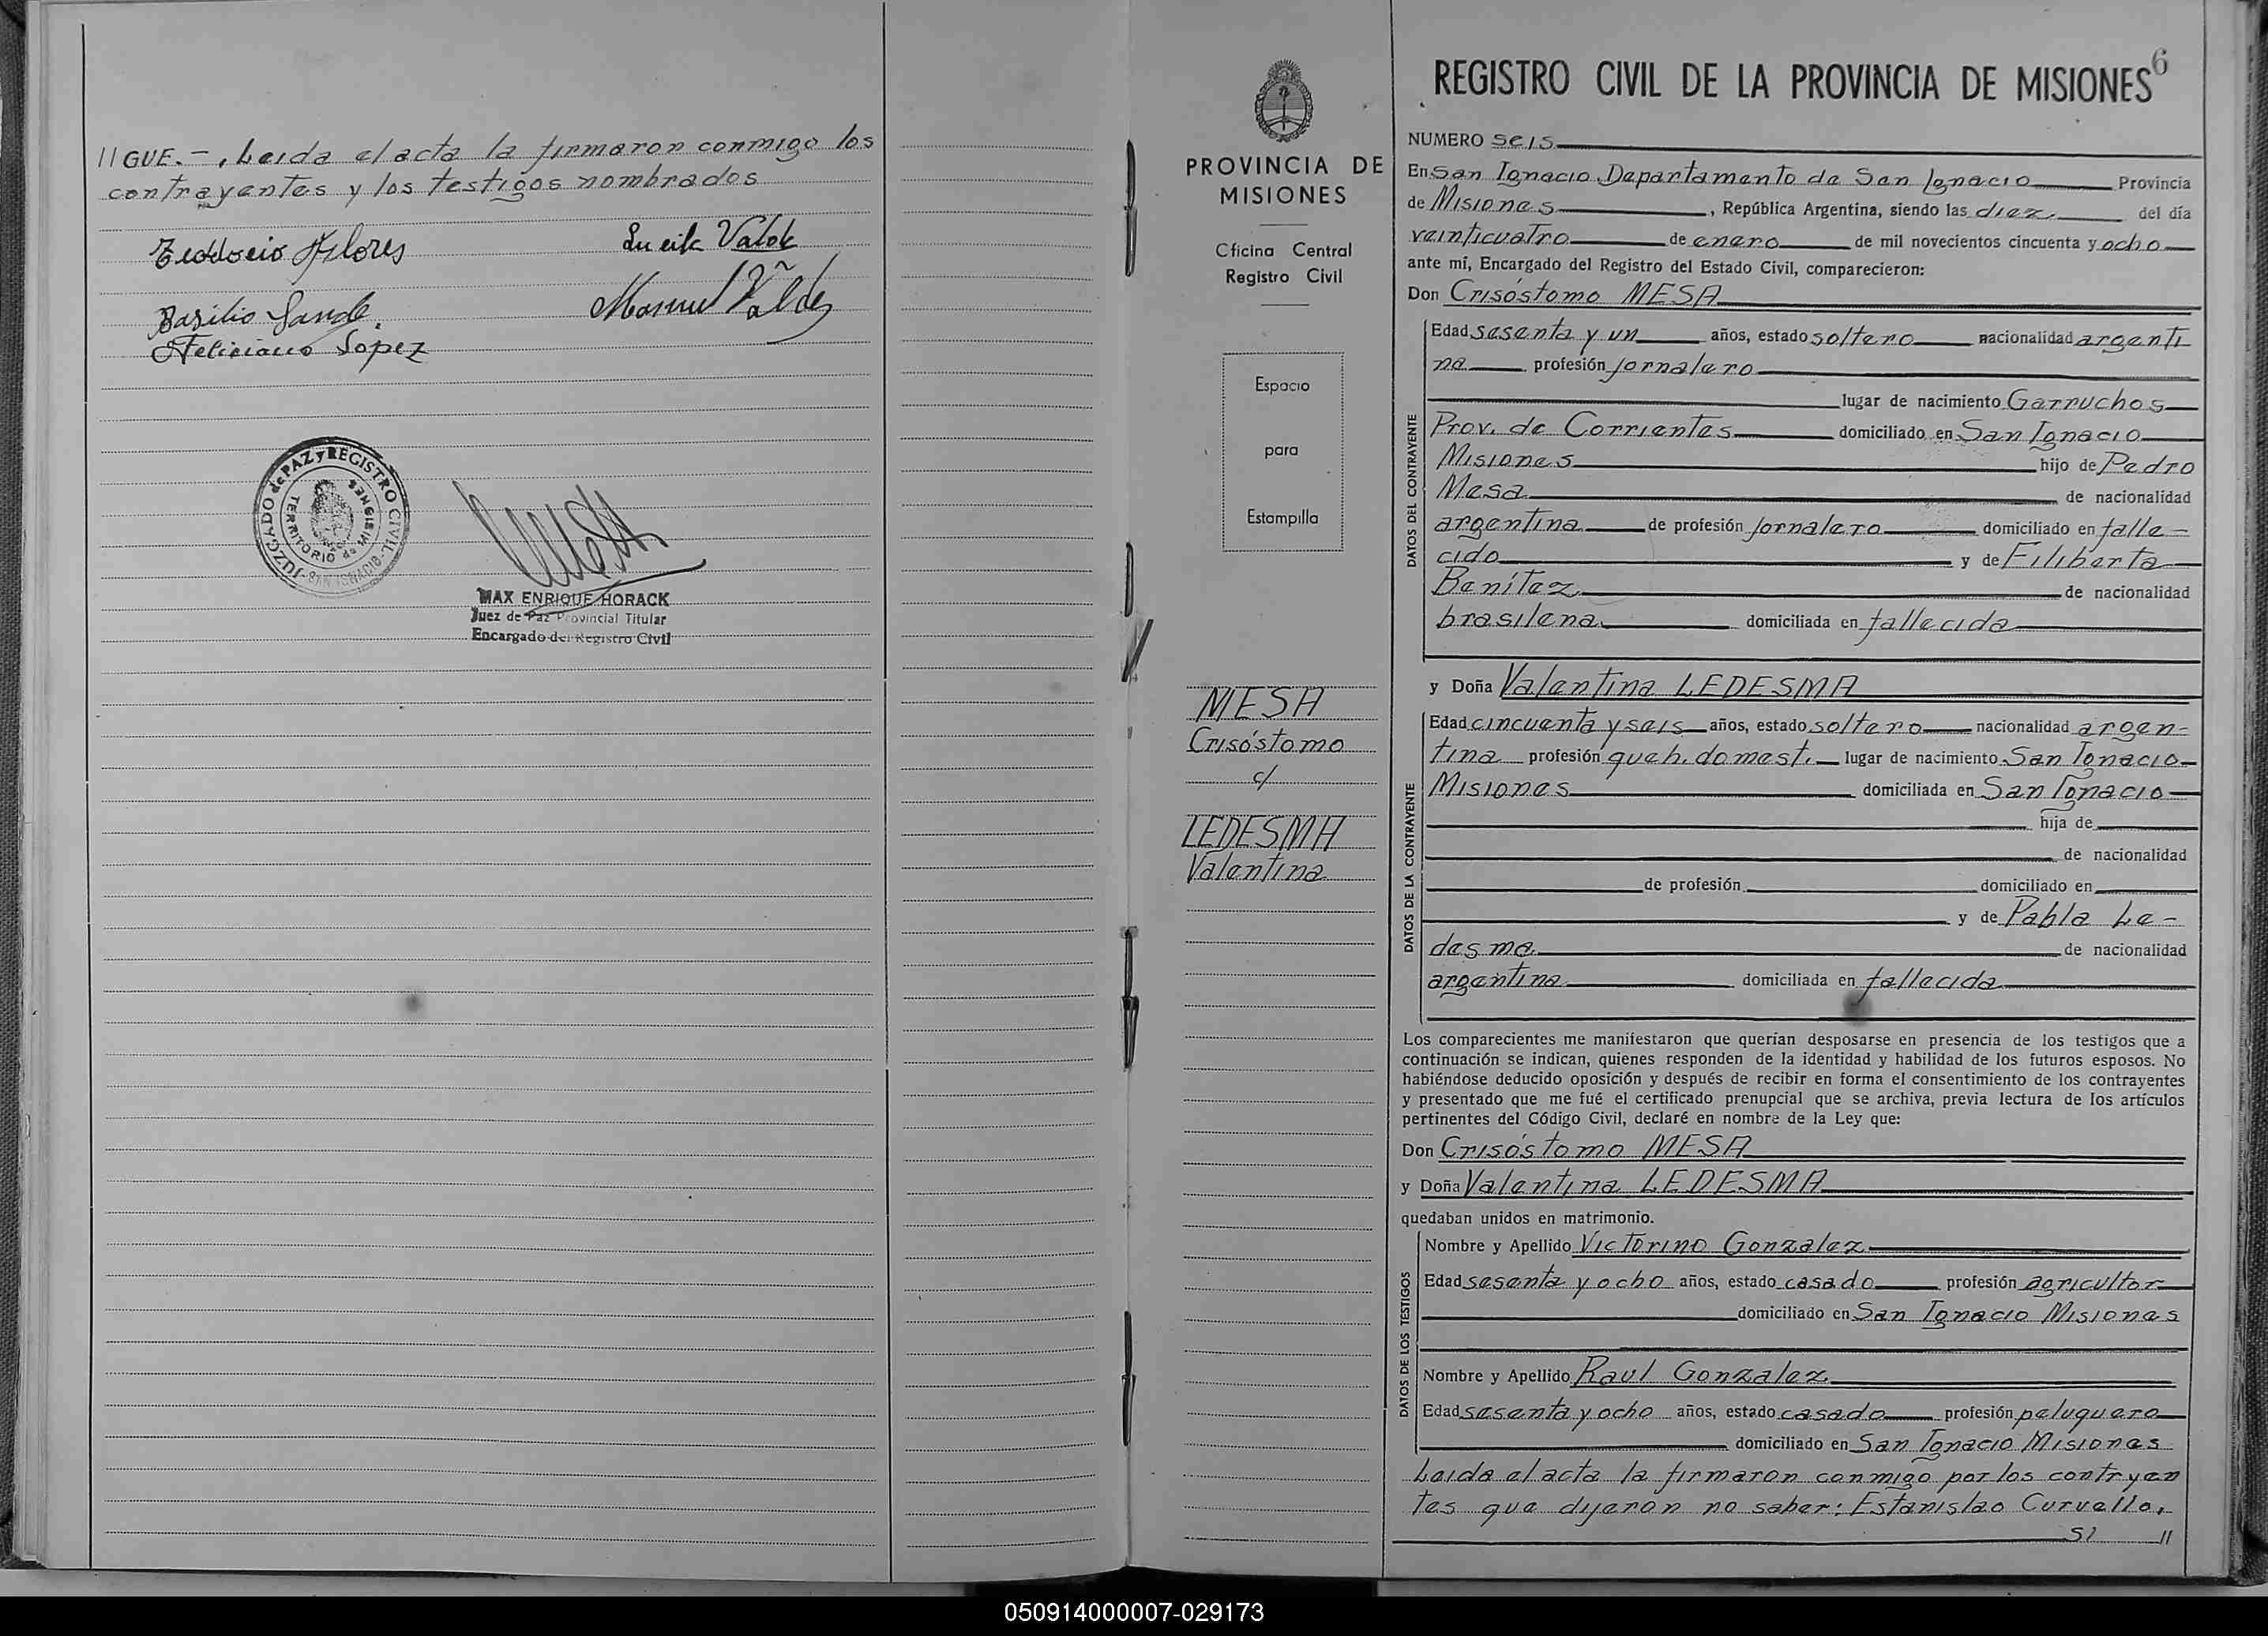 //GUE.-, Leida el acta la firmaron conmigo los
contrayentes y los testigos nombrados
Teodocio Flores
Basilio
Manuel
Feliciano Lopez
JUZGADO de PAZ y REGISTRO CIVIL - SAN IGNACIO -
TERRITORIO de MISIONES
MAX ENRIQUE HORACK
Juez de Paz Provincial Titular
Encargado del Registro Civil
PROVINCIA DE
MISIONES
Oficina Central
Registro Civil
Espacio
para
Estampilla
MESA
Crisóstomo
c/
LEDESMA
Valentina
6
REGISTRO CIVIL DE LA PROVINCIA DE MISIONES
NUMERO seis
En San Ignacio Departamento de San Ignacio Provincia
de Misiones, República Argentina, siendo las diez del día
veinticuatro de enero de mil novecientos cincuenta y ocho
ante mí, Encargado del Registro del Estado Civil, comparecieron:
Don Crisóstomo MESA
DATOS DEL CONTRAYENTE
Edad sesenta y un años, estado soltero nacionalidad argenti
na profesión jornalero
lugar de nacimiento Garruchos
Prov. de Corrientes domiciliado en San Ignacio
Misiones hijo de Pedro
Mesa de nacionalidad
argentina de profesión jornalero domiciliado en falle-
cido y de Filiberta
Benítez de nacionalidad
brasilena domiciliada en fallecida
y Doña Valentina LEDESMA
DATOS DE LA CONTRAYENTE
Edad cincuenta y seis años, estado soltero nacionalidad argen-
tina profesión queh. domest. lugar de nacimiento San Ignacio
Misiones domiciliada en San Ignacio
hija de
de nacionalidad
de profesión domiciliado en
y de Pabla Le-
desma de nacionalidad
argentina domiciliada en fallecida
Los comparecientes me manifestaron que querían desposarse en presencia de los testigos que a
continuación se indican, quienes responden de la identidad y habilidad de los futuros esposos. No
habiéndose deducido oposición y después de recibir en forma el consentimiento de los contrayentes
y presentado que me fué el certificado prenupcial que se archiva, previa lectura de los artículos
pertinentes del Código Civil, declaré en nombre de la Ley que:
Don Crisóstomo MESA
y Doña Valentina LEDESMA
quedaban unidos en matrimonio.
DATOS DE LOS TESTIGOS
Nombre y Apellido Victorino Gonzalez
Edad sesenta y ocho años, estado casado profesión agricultor
domiciliado en San Ignacio Misiones
Nombre y Apellido Raul Gonzalez
Edad sesenta y ocho años, estado casado profesión peluquero
domiciliado en San Ignacio Misiones
Leida el acta la firmaron conmigo por los contryen
tes que dijeron no saber: Estanislao Curvello,
SI //
050914000007-029173